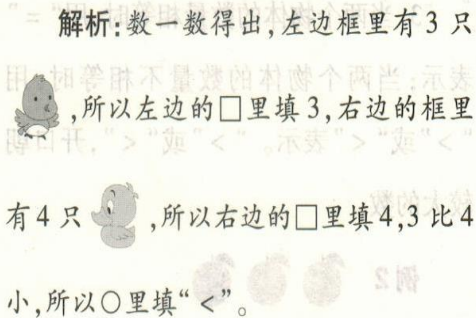 解析:数一数得出,左边框里有3只
,所以左边的□里填3,右边的框里
有4只 ,所以右边的□里填4,3比4
小,所以○里填“<”。